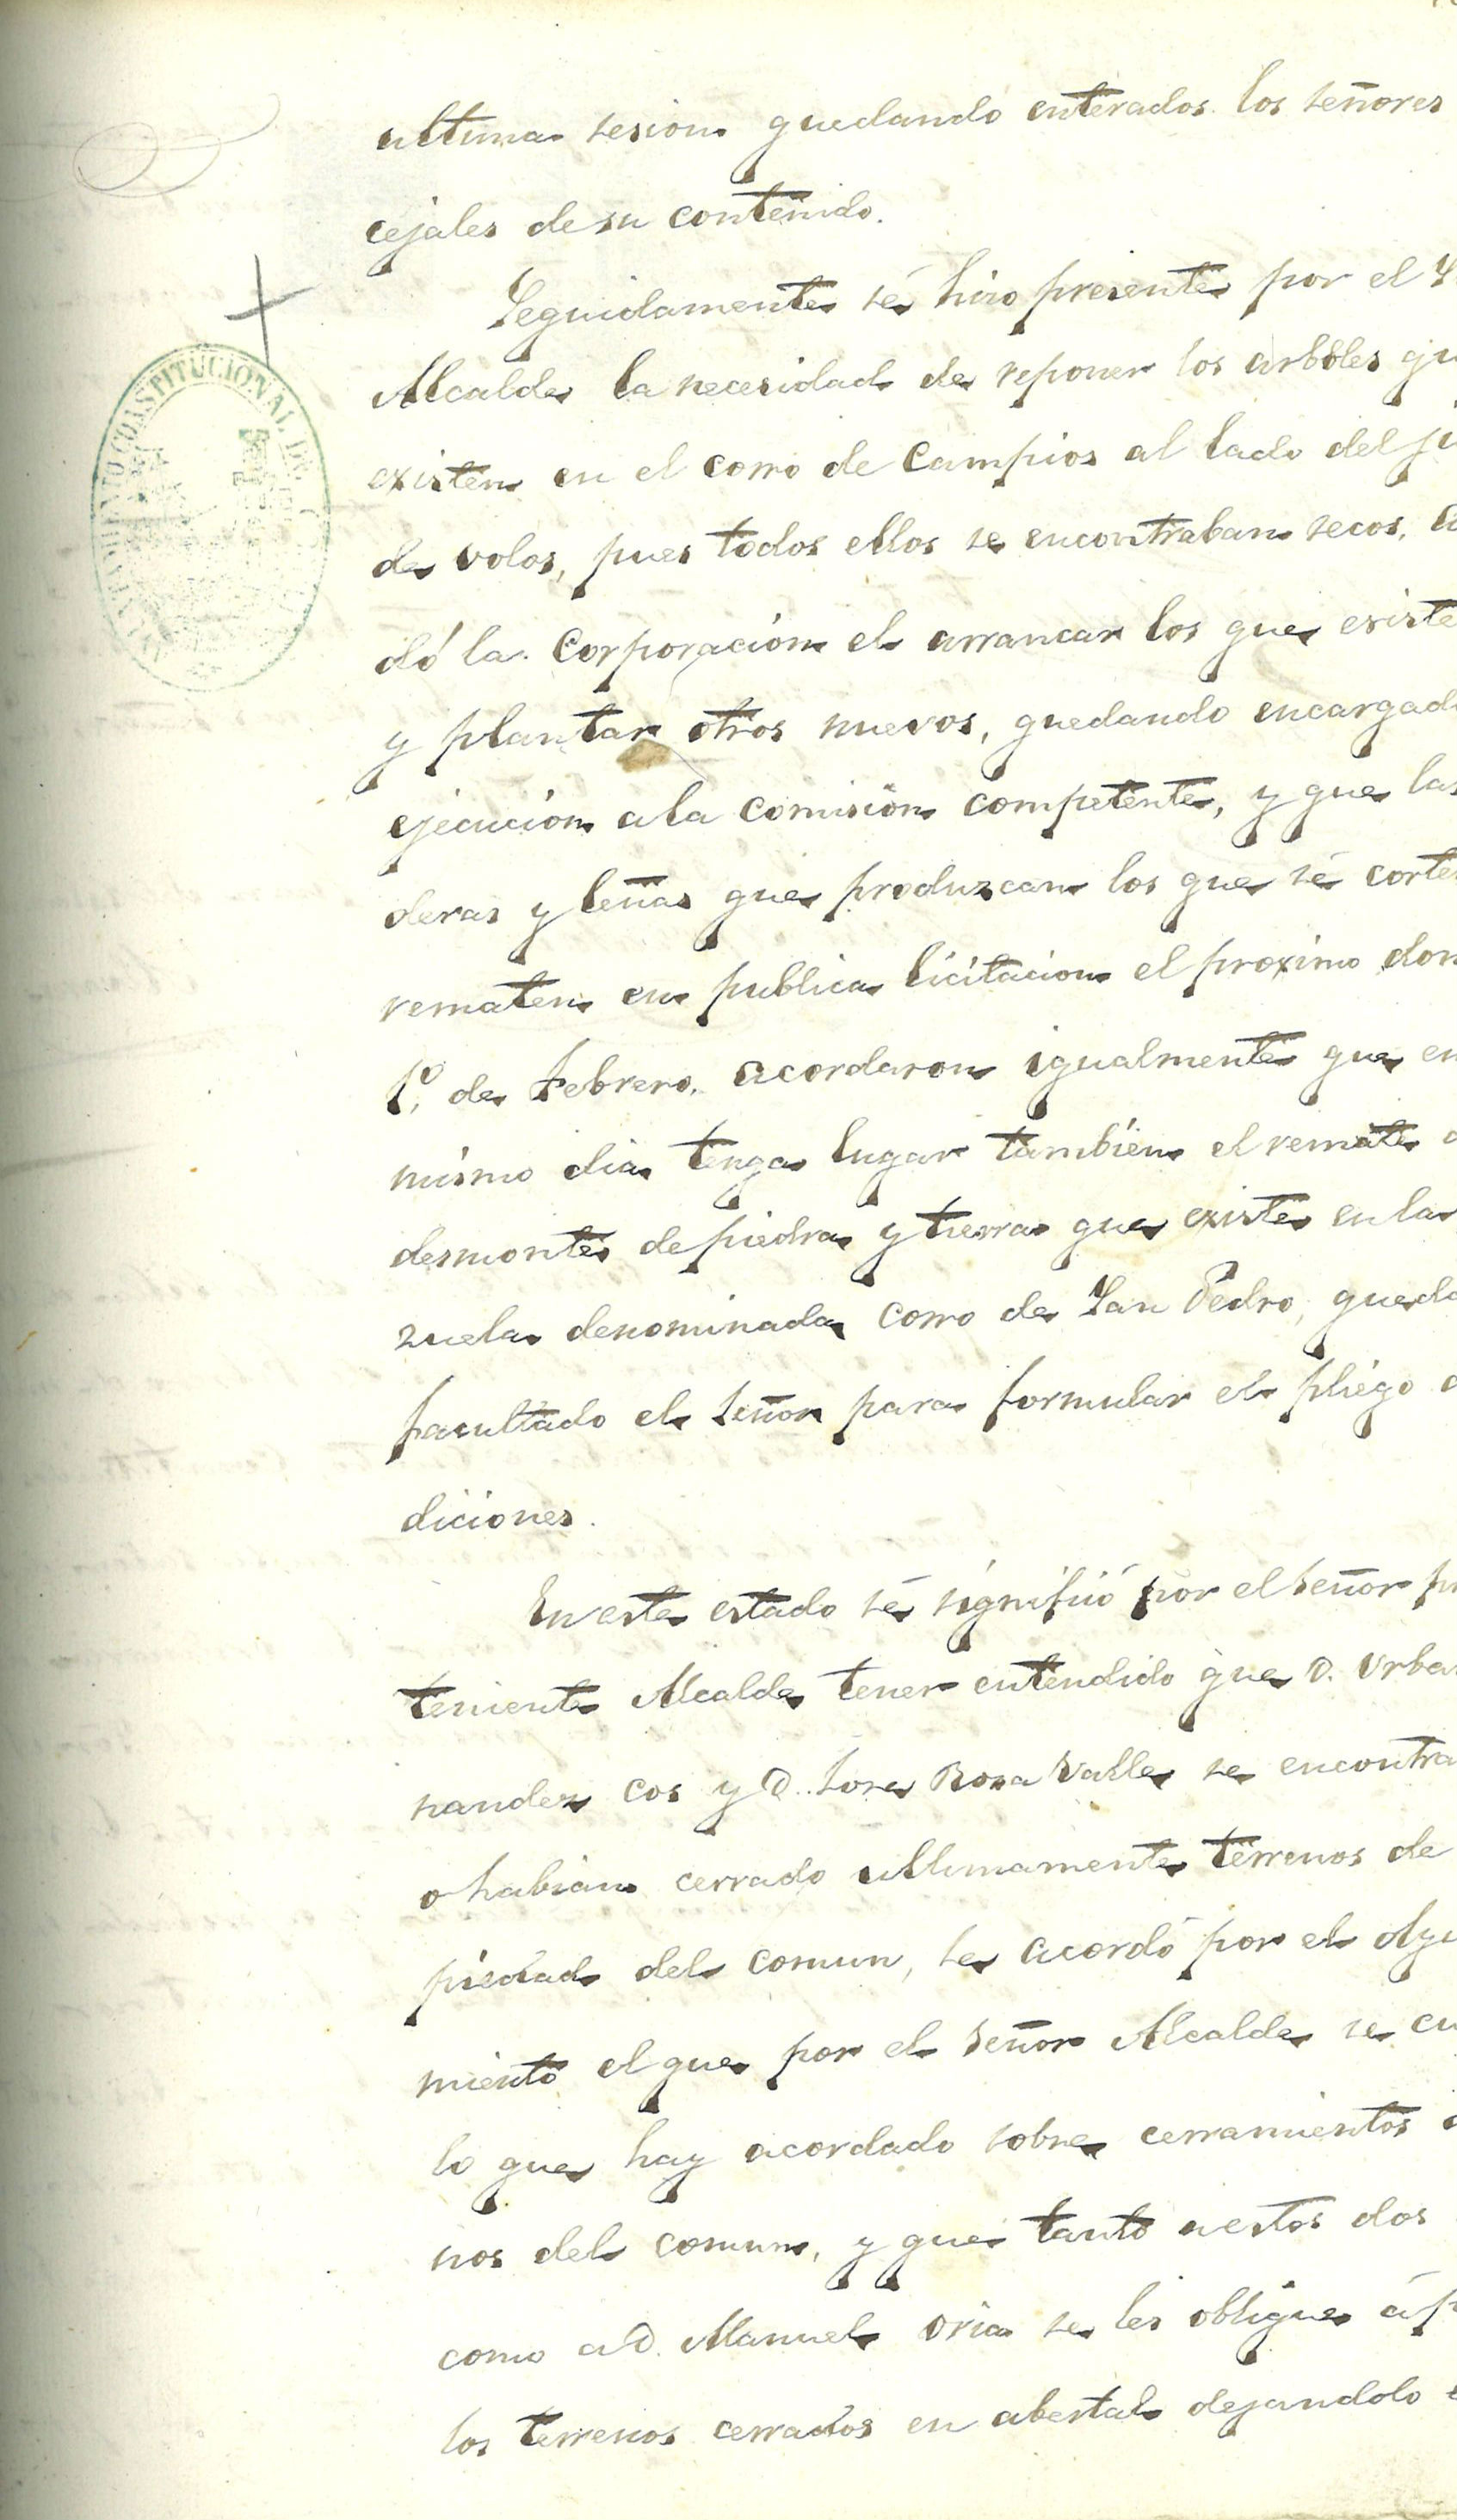 ultima sesion quedando enterados los señores
cejales de su contenido.
Seguidamente sé hizo presente por el
Alcalde la necesidad de reponer los arboles qu
existen en el corro de Campios al lado del
de volos, pues todos ellos se encontraban secos, a
dó la Corporación el arrancar los que existe
y plantar otros nuevos, quedando encargad
ejecución a la comisión competente, y que las
deras y leñas que produzcan los que sé corte
rematen en publica licitacion el proximo dom
1º. de Febrero. acordaron igualmente que en
mismo dia tenga lugar también el remate d
desmonte de piedra y tierra que existe en la
zuela denominada corro de San Pedro, queda
facultado el señor para formular el pliego
diciones.
En este estado sé significó por el señor pr
teniente Alcalde tener entendido que D. Urba
nandez Cos y D. Jose Roza Valle se encontra
o habian cerrado ultimamente terrenos de
piedad del comun, se acordó por el Ayu
miento el que por el señor Alcalde se cu
lo que hay acordado sobre cerramientos
nos del comun, y que tanto a estos dos
como a D. Manuel Oria se les obligue á p
los terrenos cerrados en abertal dejandolo
AYUNTAMIENTO CONSTITUCIONAL DE